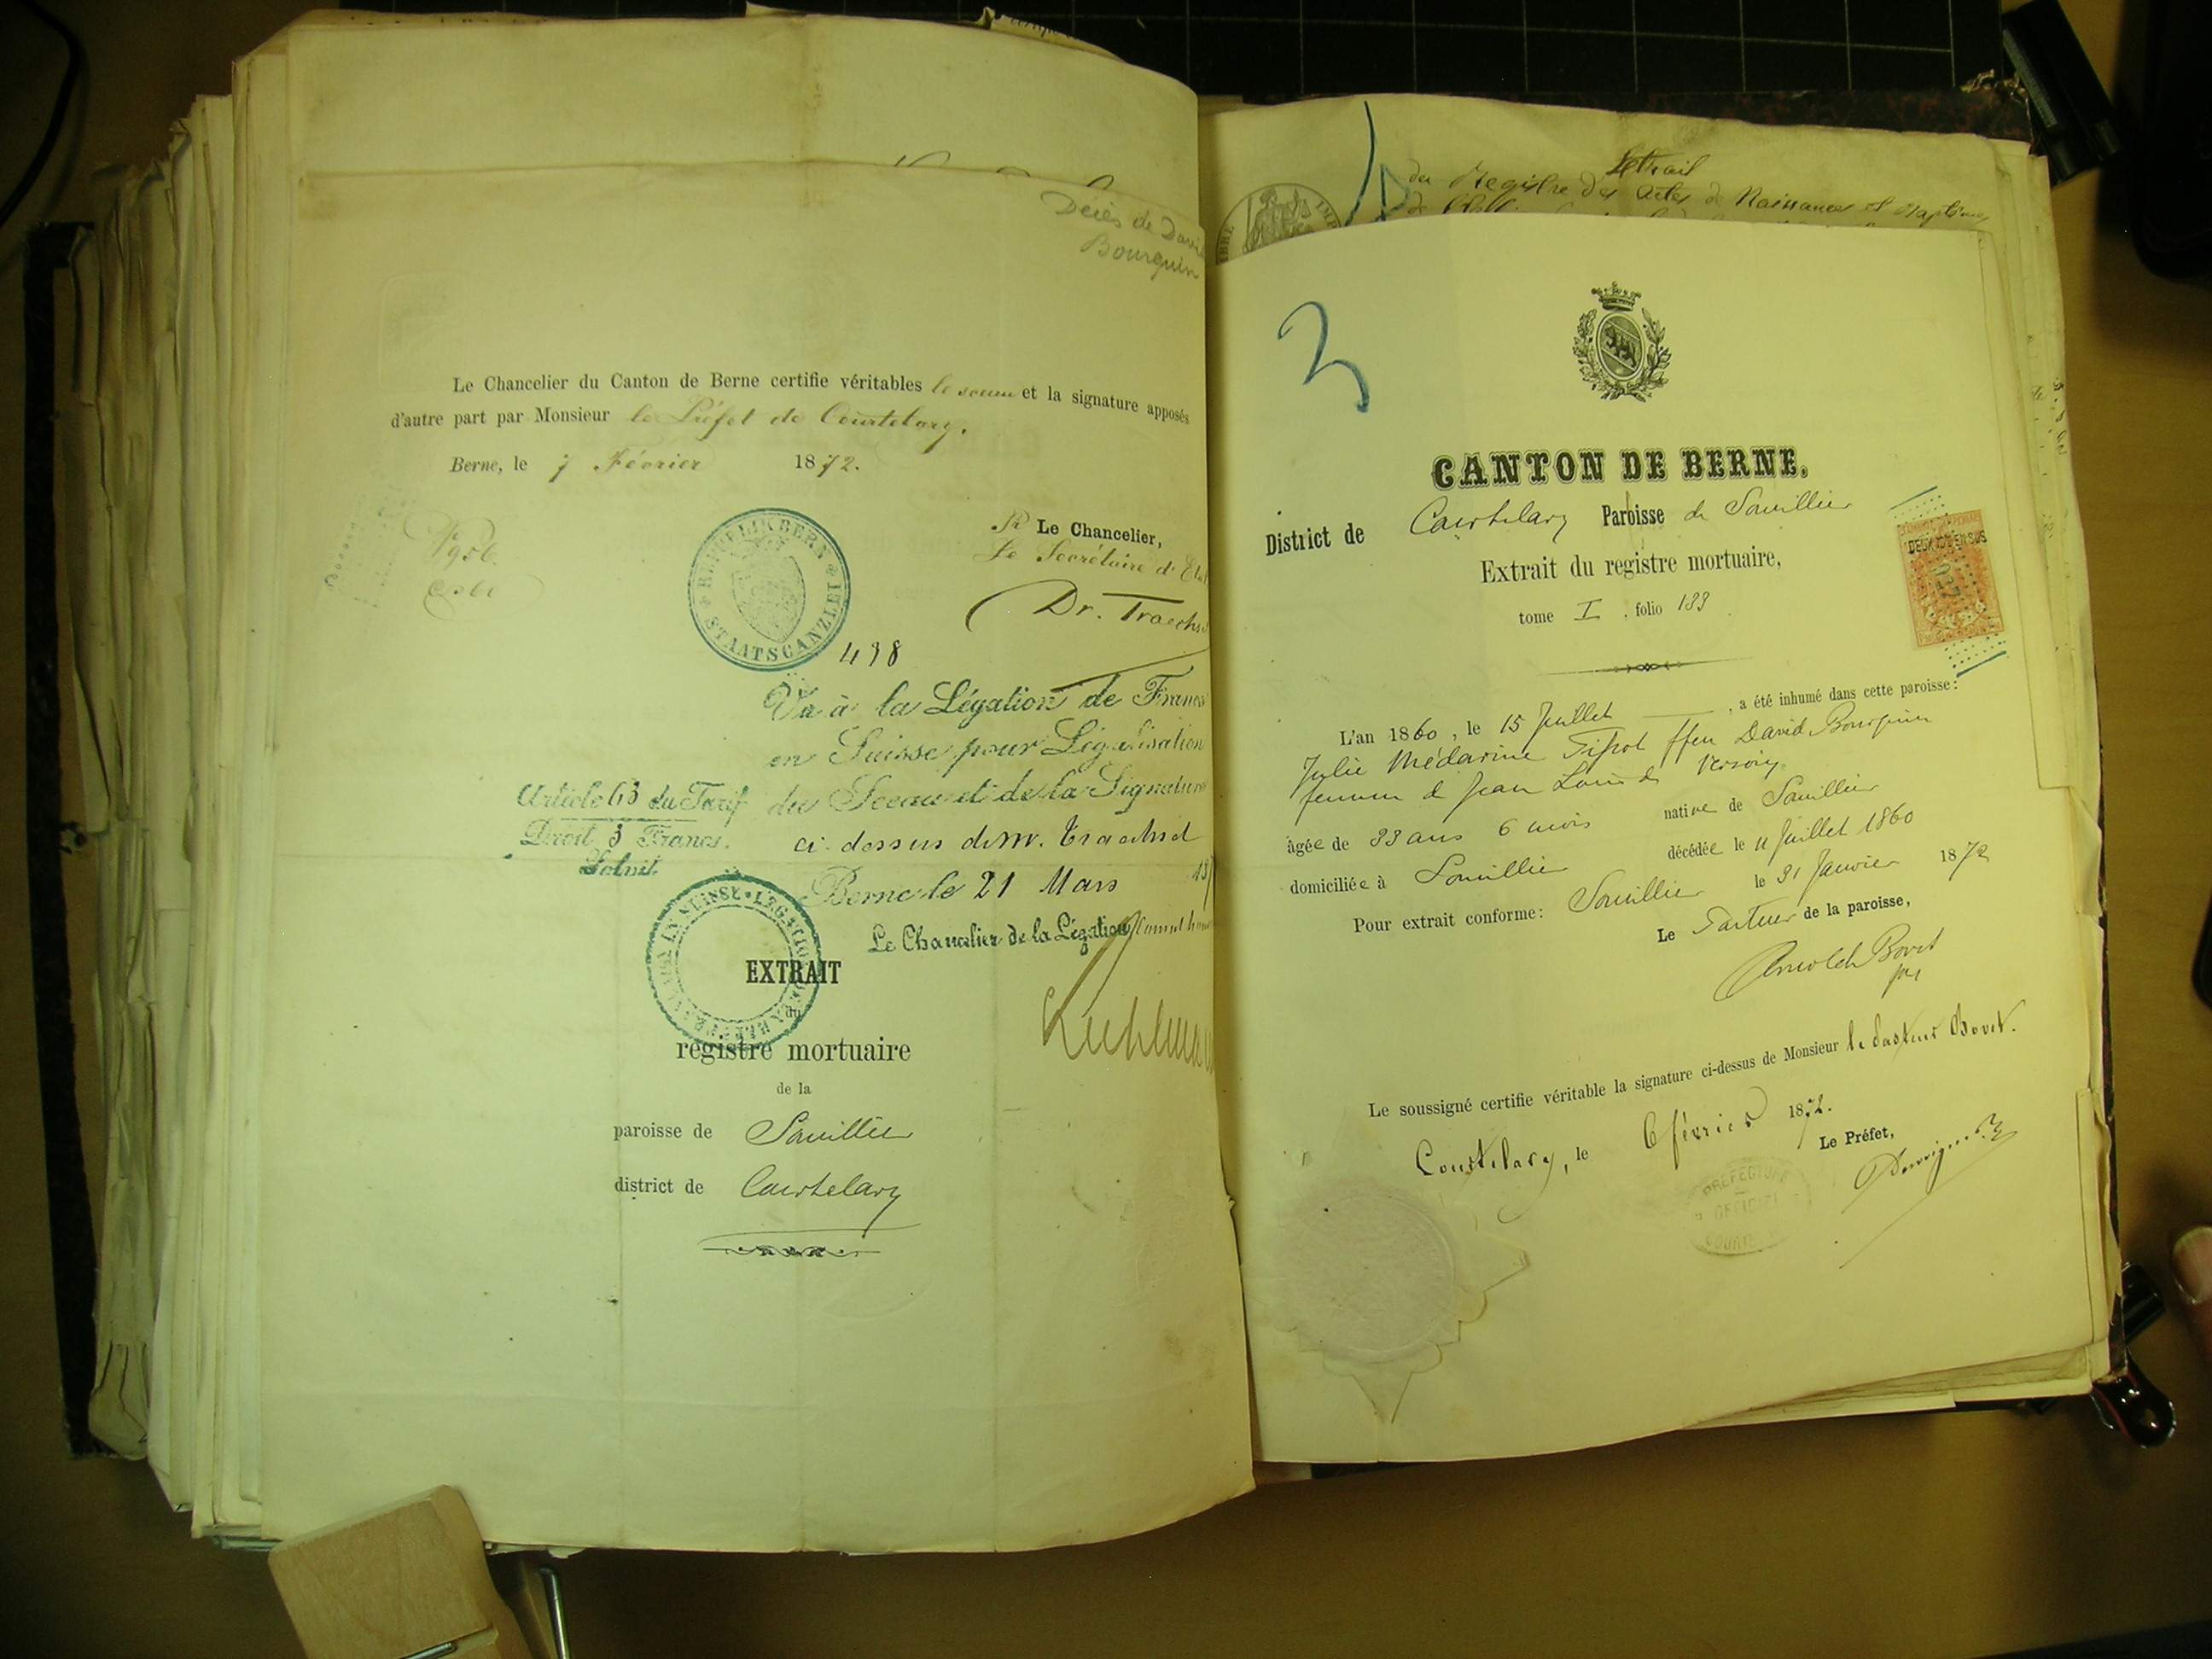 Décès de David
Bourquin
Le Chancelier du Canton de Berne certifie véritables le sceau et la signature apposés
d'autre part par Monsieur le Préfet de Courtelary.
Berne, le 7 Février 1872.
Pr Le Chancelier,
Le Secrétaire d'Etat
Dr. Traechs
REPUBLIK BERN
STAATSCANZLEI
438
Vu à la Légation de France
en Suisse pour Légalisation
du Sceau et de la Signature
ci-dessus de M. Traechsel
Article 63 du Tarif
Droit 3 Francs.
Berne le 21 Mars 187
Le Chancelier de la Légation
EXTRAIT
du
registre mortuaire
de la
paroisse de Sonvillier
district de Courtelary
Extrait
des Registre des Actes de Naissances et Baptêmes
3
CANTON DE BERNE.
District de Courtelary Paroisse de Sonvillier
Extrait du registre mortuaire,
tome I, folio 133
DEUX EN SUS
L'an 1860, le 15 Juillet, a été inhumé dans cette paroisse:
Julie Médarine Tissot ffeu David Bourquin
femme de Jean Louis de
âgée de 33 ans 6 mois native de Sonvillier
domiciliée à Sonvillier décédée le 11 Juillet 1860
Pour extrait conforme: Sonvillier le 31 Janvier 1872
Le Pasteur de la paroisse,
Arnold Bovet
Le soussigné certifie véritable la signature ci-dessus de Monsieur le Pasteur Bovet.
Courtelary, le 6 février 1872.
Le Préfet,
PREFECTURE